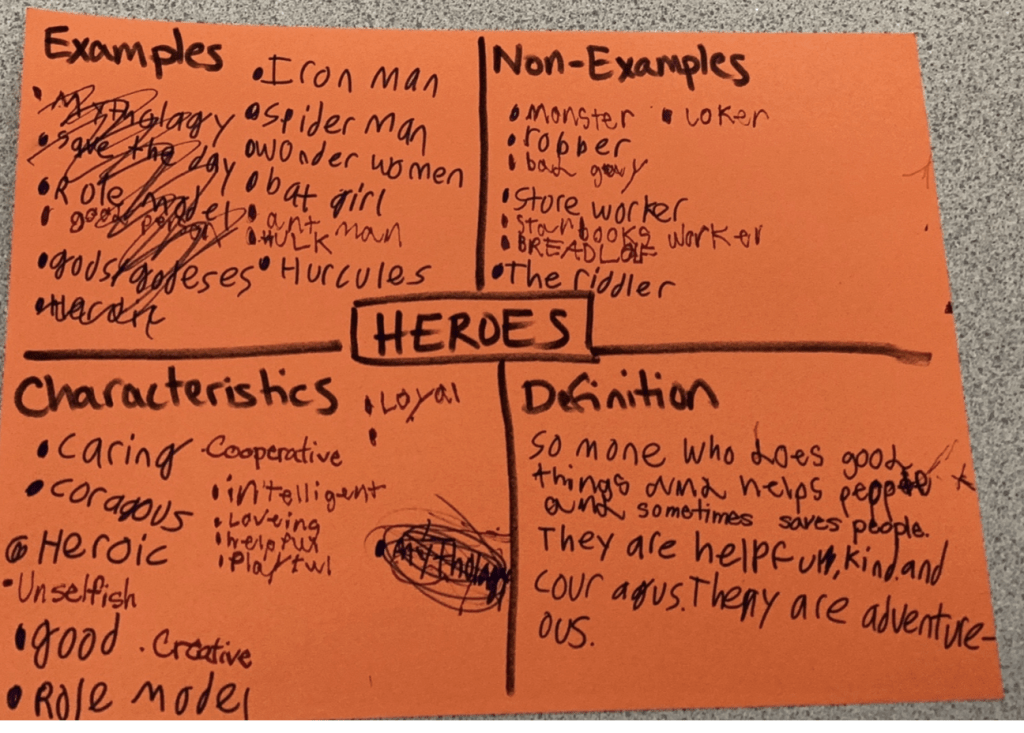 Examples
• Mythology
• Save the day
• Role model
• good person
• gods/godeses
• Heroic
• Iron man
• Spider man
• wonder women
• bat girl
• ant man
• HULK
• Hurcules
Non-Examples
• monster • Loker
• ropper
• bad guy
• Store worker
• Starbooks worker
• BREADLOF
• The riddler
HEROES
Characteristics
• caring
• coragous
• Heroic
• Unselfish
• good
• Role model
- Cooperative
• intelligent
• Loveing
• helpful
• Playful
• Creative
• Loyal
• Mythology
Definition
So mone who does good
things and helps people
and sometimes saves people.
They are helpfun, kind. and
cour agus. They are adventure-
ous.